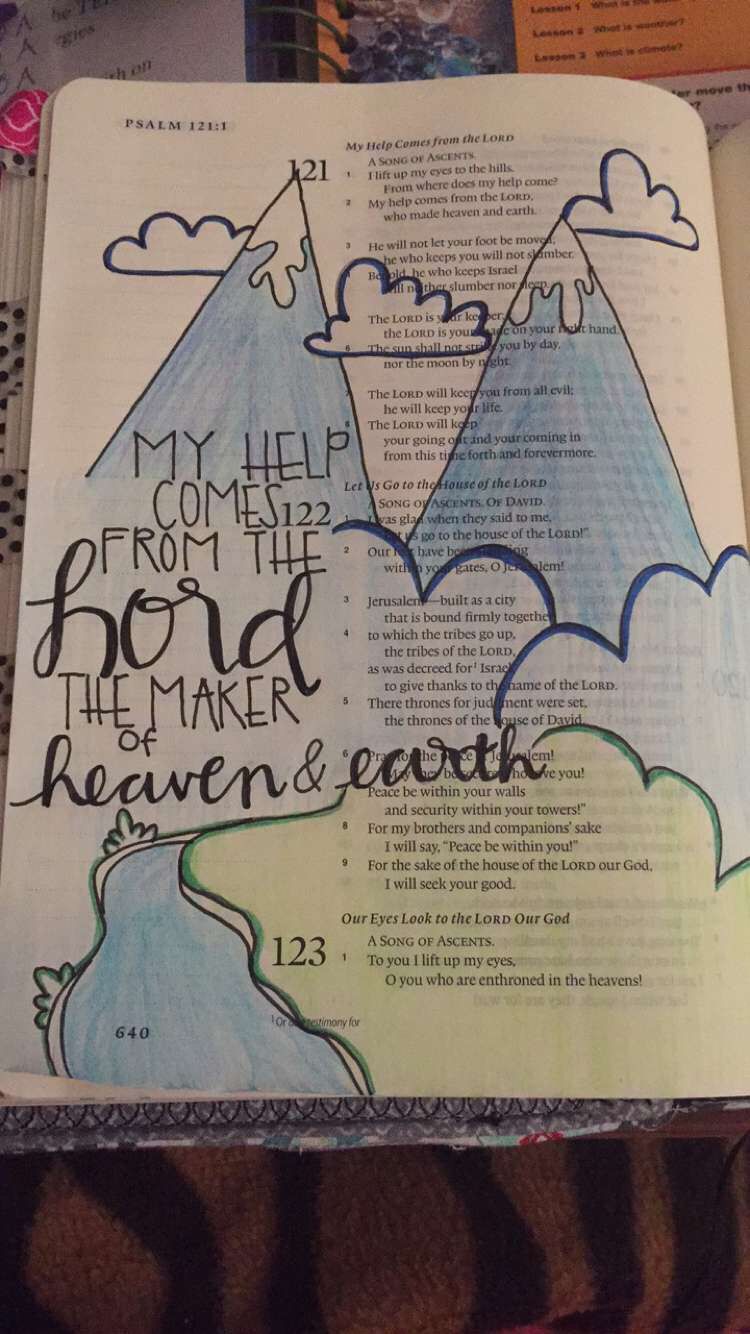 Lesson 1
Lesson 2 What is weather?
Lesson 3 What is climate?
move th
PSALM 121:1
My Help Comes from the LORD
121
A SONG OF ASCENTS.
1 I lift up my eyes to the hills.
From where does my help come?
2 My help comes from the LORD,
who made heaven and earth.
3 He will not let your foot be moved;
he who keeps you will not slumber.
Behold, he who keeps Israel
will neither slumber nor sleep.
The LORD is your keeper;
the LORD is your shade on your right hand.
6 The sun shall not strike you by day,
nor the moon by night.
The LORD will keep you from all evil;
he will keep your life.
The LORD will keep
your going out and your coming in
from this time forth and forevermore.
Let Us Go to the House of the LORD
122
A SONG OF ASCENTS. OF DAVID.
I was glad when they said to me,
us go to the house of the LORD!"
2 Our have been
within your gates, O Jerusalem!
3 Jerusalem—built as a city
that is bound firmly together,
4 to which the tribes go up,
the tribes of the LORD,
as was decreed for¹ Israel,
to give thanks to the name of the LORD.
5 There thrones for judgment were set,
the thrones of the house of David.
6 Pray for the peace of Jerusalem!
you!
Peace be within your walls
and security within your towers!"
8 For my brothers and companions' sake
I will say, "Peace be within you!"
9 For the sake of the house of the LORD our God,
I will seek your good.
Our Eyes Look to the LORD Our God
123
A SONG OF ASCENTS.
1 To you I lift up my eyes,
O you who are enthroned in the heavens!
1 Or testimony for
640
MY HELP
COMES
FROM THE
Lord
THE MAKER
of
heaven & earth